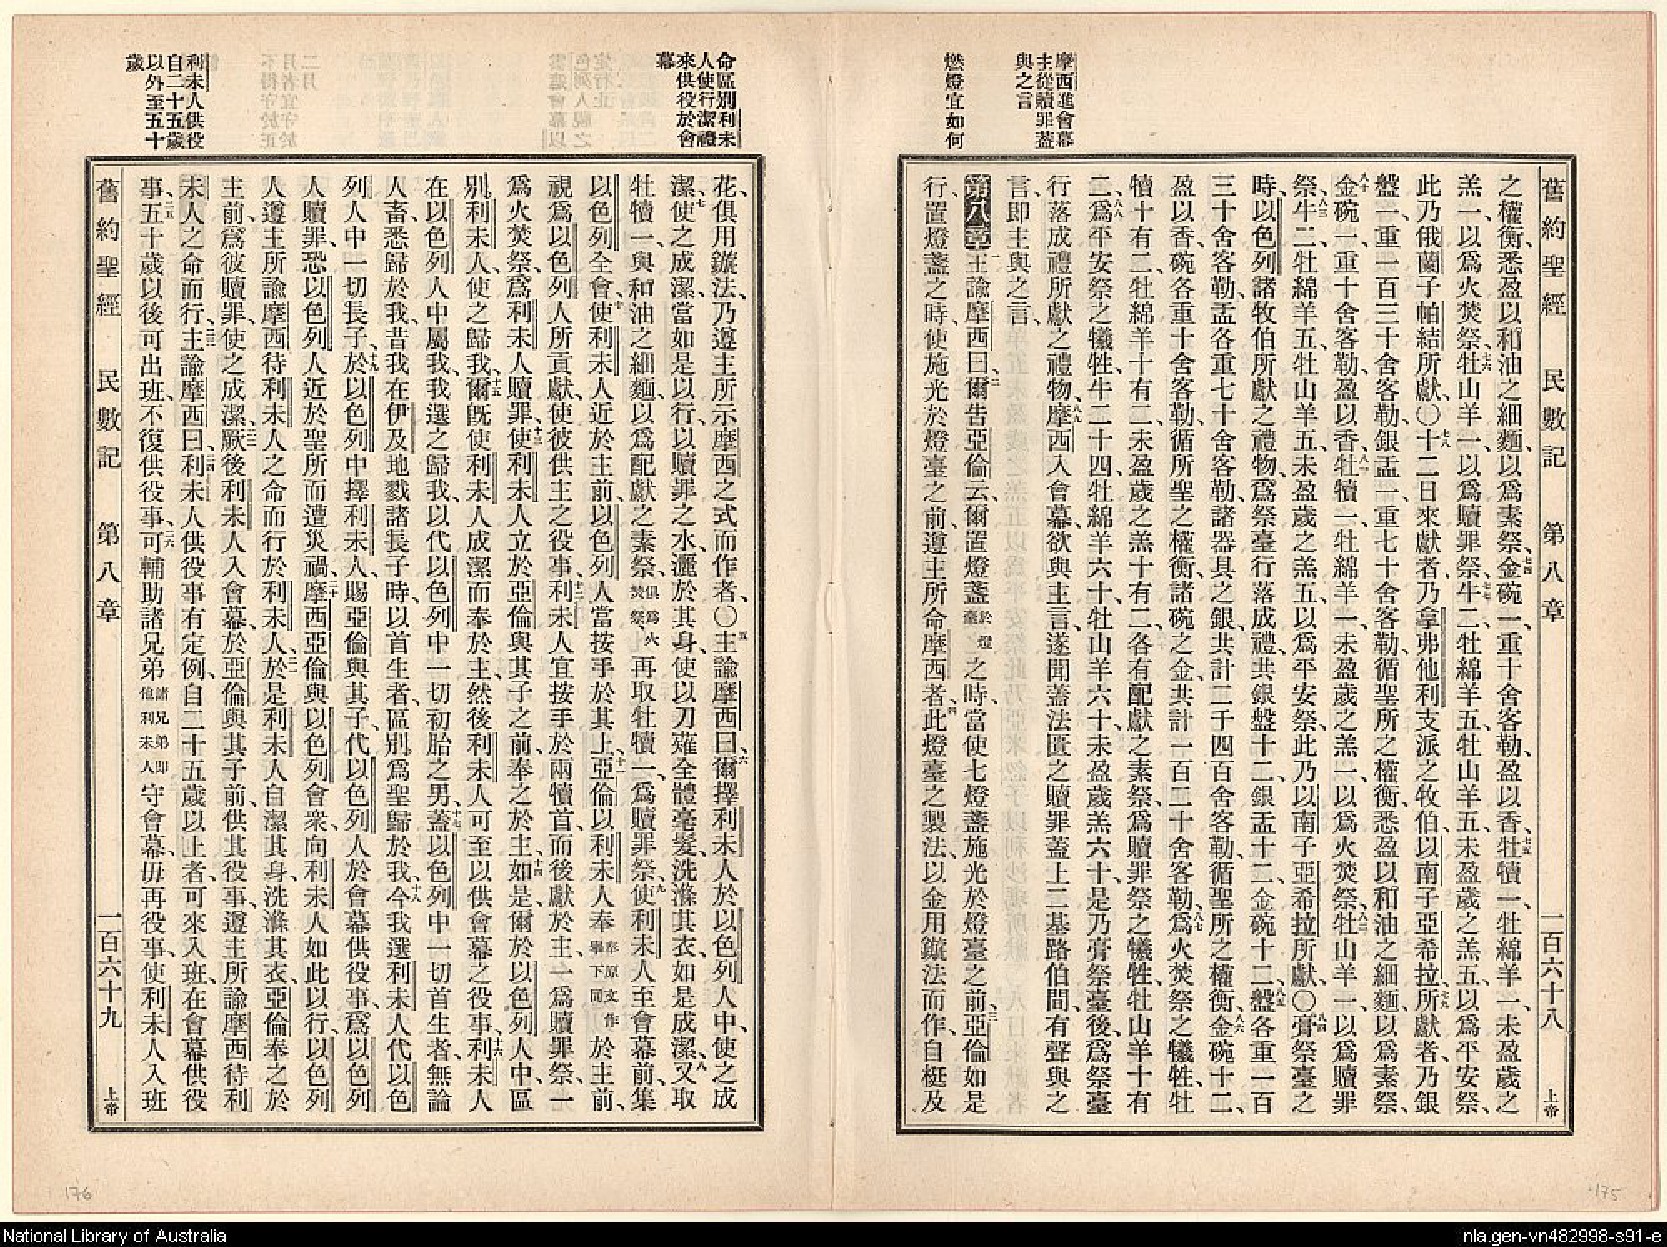 摩西進會幕
主從贖罪蓋
與之言
燃燈宜如何
舊約聖經 民數記 第八章 一百六十八 上帝
之權衡悉盈以和油之細麵、以爲素祭、七四金碗一、重十舍客勒、盈以香、七五牡犢一、牡綿羊一、未盈歲之
羔一、以爲火焚祭、七六牡山羊一、以爲贖罪祭、七七牛二、牡綿羊五、牡山羊五、未盈歲之羔五、以爲平安祭、
此乃俄蘭子帕結所獻、〇七八十二日來獻者、乃拿弗他利支派之牧伯、以南子亞希拉、七九所獻者、乃銀
盤一、重一百三十舍客勒、銀盂一、重七十舍客勒、循聖所之權衡、悉盈以和油之細麵、以爲素祭、
八十金碗一、重十舍客勒、盈以香、八一牡犢一、牡綿羊一、未盈歲之羔一、以爲火焚祭、八二牡山羊一、以爲贖罪
祭、八三牛二、牡綿羊五、牡山羊五、未盈歲之羔五、以爲平安祭、此乃以南子亞希拉所獻、〇八四膏祭臺之
時、以色列諸牧伯所獻之禮物、爲祭臺行落成禮、共銀盤十二、銀盂十二、金碗十二、八五盤各重一百
三十舍客勒、盂各重七十舍客勒、諸器具之銀、共計二千四百舍客勒、循聖所之權衡、八六金碗十二、
盈以香、碗各重十舍客勒、循所聖之權衡、諸碗之金、共計一百二十舍客勒、八七爲火焚祭之犧牲、牡
犢十有二、牡綿羊十有二、未盈歲之羔十有二、各有配獻之素祭、爲贖罪祭之犧牲、牡山羊十有
二、八八爲平安祭之犧牲、牛二十四、牡綿羊六十、牡山羊六十、未盈歲羔六十、是乃膏祭臺後、爲祭臺
行落成禮所獻之禮物、八九摩西入會幕、欲與主言、遂聞蓋法匱之贖罪蓋上、二基路伯間、有聲與之
言、即主與之言、
第八章 一主諭摩西曰、二爾告亞倫云、爾置燈盞於燈臺之時、當使七燈盞施光於燈臺之前、三亞倫如是
行、置燈盞之時、使施光於燈臺之前、遵主所命摩西者、四此燈臺之製法、以金用鏇法而作、自梃及
175
命區別利未
人使行潔禮
來供役於會
幕
利未人供役
自二十五歲
以外至五十
歲
花、俱用鏇法、乃遵主所示摩西之式而作者、〇五主諭摩西曰、六爾擇利未人於以色列人中、使之成
潔、七使之成潔、當如是以行、以贖罪之水灑於其身、使以刀薙全體毫髮、洗滌其衣、如是成潔、八又取
牡犢一、與和油之細麵、以爲配獻之素祭、俱爲火焚祭再取牡犢一、爲贖罪祭、九使利未人至會幕前、集
以色列全會、十使利未人近於主前、以色列人當按手於其上、十一亞倫以利未人奉奉原文作舉下同於主前、
視爲以色列人所貢獻、使彼供主之役事、十二利未人宜按手於兩犢首、而後獻於主、一爲贖罪祭、一
爲火焚祭、爲利未人贖罪、十三使利未人立於亞倫與其子之前、奉之於主、十四如是、爾於以色列人中、區
別利未人、使之歸我、十五爾旣使利未人成潔而奉於主、然後利未人可至以供會幕之役事、十六利未人
在以色列人中屬我、我選之歸我、以代以色列中一切初胎之男、十七蓋以色列中一切首生者、無論
人畜、悉歸於我、昔我在伊及地戮諸長子時、以首生者、區別爲聖歸於我、十八今我選利未人代以色
列人中一切長子、十九於以色列中擇利未人、賜亞倫與其子、代以色列人於會幕供役事、爲以色列
人贖罪、恐以色列人近於聖所而遭災禍、二十摩西亞倫與以色列會衆、向利未人如此以行、以色列
人遵主所諭摩西待利未人之命而行於利未人、二一於是利未人自潔其身、洗滌其衣、亞倫奉之於
主前、爲彼贖罪、使之成潔、二二厥後利未人入會幕、於亞倫與其子前、供其役事、遵主所諭摩西待利
未人之命而行、二三主諭摩西曰、二四利未人供役事有定例、自二十五歲以上者、可來入班、在會幕供役
事、二五五十歲以後、可出班、不復供役事、二六可輔助諸兄弟諸兄弟即他利未人守會幕、毋再役事、使利未人入班
舊約聖經 民數記 第八章 一百六十九 上帝
176
National Library of Australia
nla.gen-vn482998-s91-e